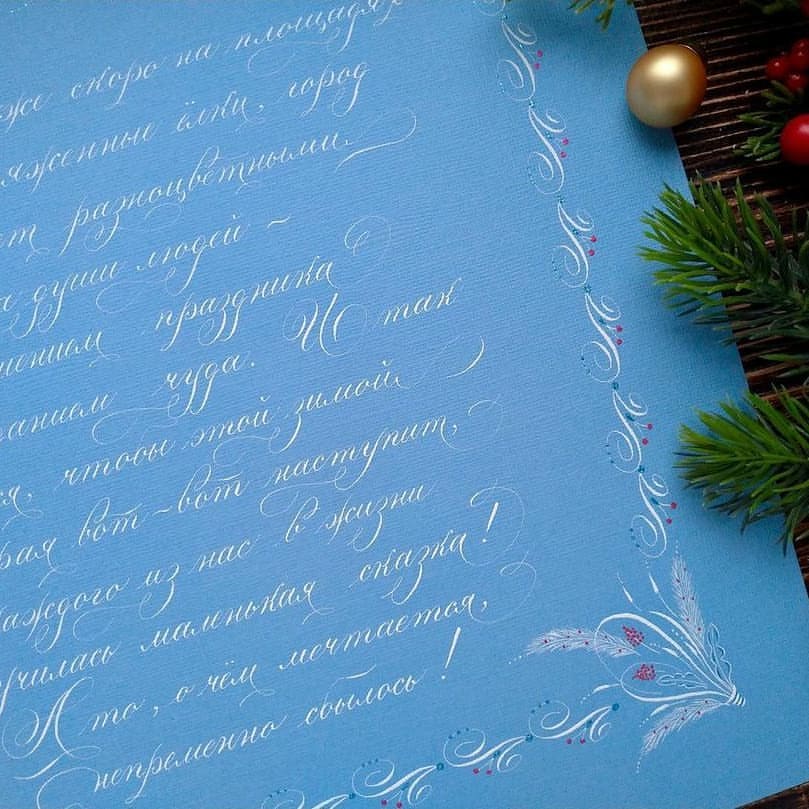 же скоро на площадях
яженные ёлки, город
ет разноцветными
а души людей ~
нением праздника
анием чуда. И так
ся, чтобы этой зимой,
рая вот-вот наступит,
каждого из нас в жизни
училась маленькая сказка!
А то, о чём мечтается,
непременно сбылось!